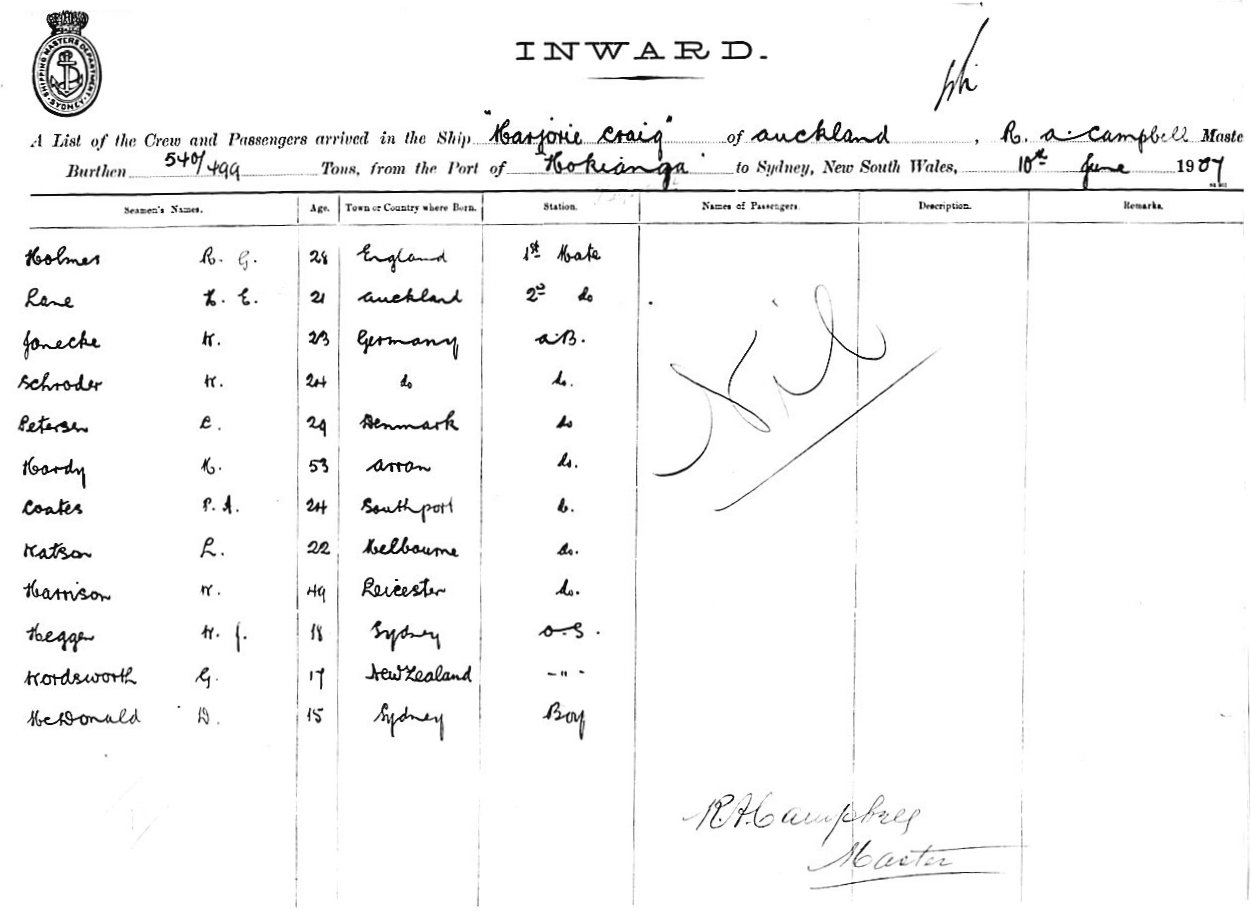 SHIPPING MASTERS DEPARTMENT SYDNEY
INWARD.
A List of the Crew and Passengers arrived in the Ship "Marjorie Craig" of Auckland, R. A. Campbell Maste
Burthen 540/499 Tons, from the Port of "Hokianga" to Sydney, New South Wales, 10th June 1907
Seamen's Names. Age. Town or Country where Born. Station. Names of Passengers. Description. Remarks.
Holmes R. G. 28 England 1st Mate
Lane H. E. 21 Auckland 2d do
Janecke W. 23 Germany A.B.
Schroder W. 24 do do.
Petersen C. 29 Denmark do
Hardy H. 53 Arran do.
Coates P. A. 24 Southport do.
Watson L. 22 Melbourne do.
Harrison W. 49 Leicester do.
Hegger W. J. 18 Sydney O.S.
Wordsworth G. 17 New Zealand - " -
McDonald D. 15 Sydney Boy
Nil
R.A. Campbell
Master